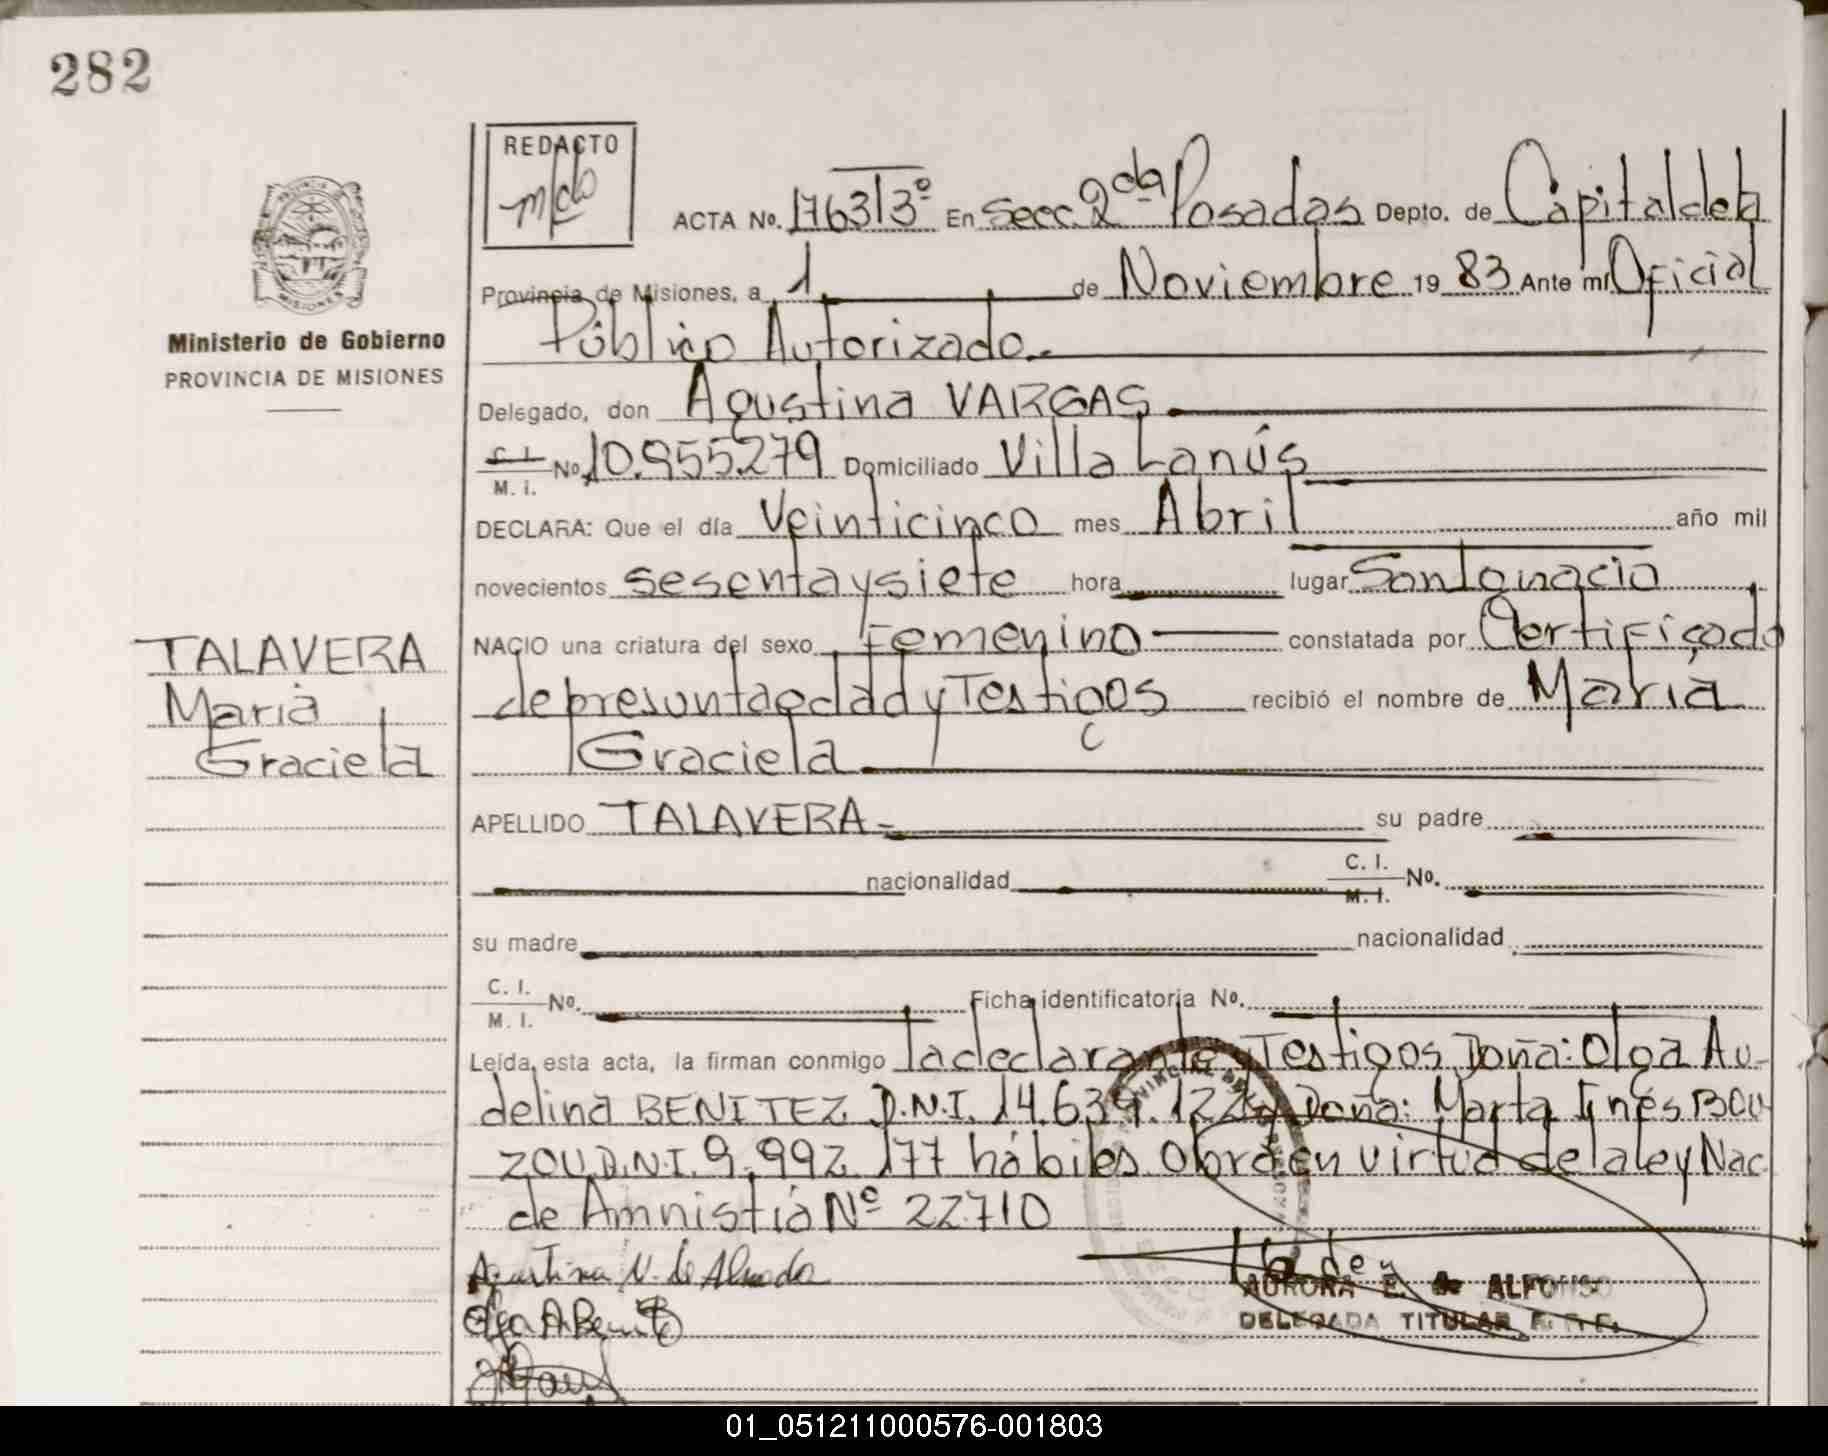 282
REDACTO
ACTA No. 1763 T3º En Secc. 2da Posadas Depto. de Capital de la
Provincia de Misiones, a 1 de Noviembre 19 83 Ante mí Oficial
Público Autorizado.-
Ministerio de Gobierno
PROVINCIA DE MISIONES
Delegado, don Agustina VARGAS
C. I. No. 10.955.279 Domiciliado Villa Lanús
M. I.
DECLARA: Que el día Veinticinco mes Abril año mil
novecientos sesenta y siete hora lugar San Ignacio
NACIO una criatura del sexo Femenino constatada por Certificado
de presunta edad y Testigos recibió el nombre de María
Graciela
TALAVERA
María
Graciela
APELLIDO TALAVERA- su padre
nacionalidad C. I. No.
M. I.
su madre nacionalidad
C. I. No. Ficha identificatoria No.
M. I.
Leída esta acta, la firman conmigo la declarante y Testigos Doña: Olga Au-
delina BENITEZ D.N.I. 14.639.122 y Doña: Marta Inés BOU
ZOU D.N.I. 9.992.177 hábiles Obra en virtud de la ley Nac
de Amnistía Nº 22710
Agustina V. de Almada
Olga A Benitez
AURORA E. de ALFONSO
DELEGADA TITULAR
01_051211000576-001803